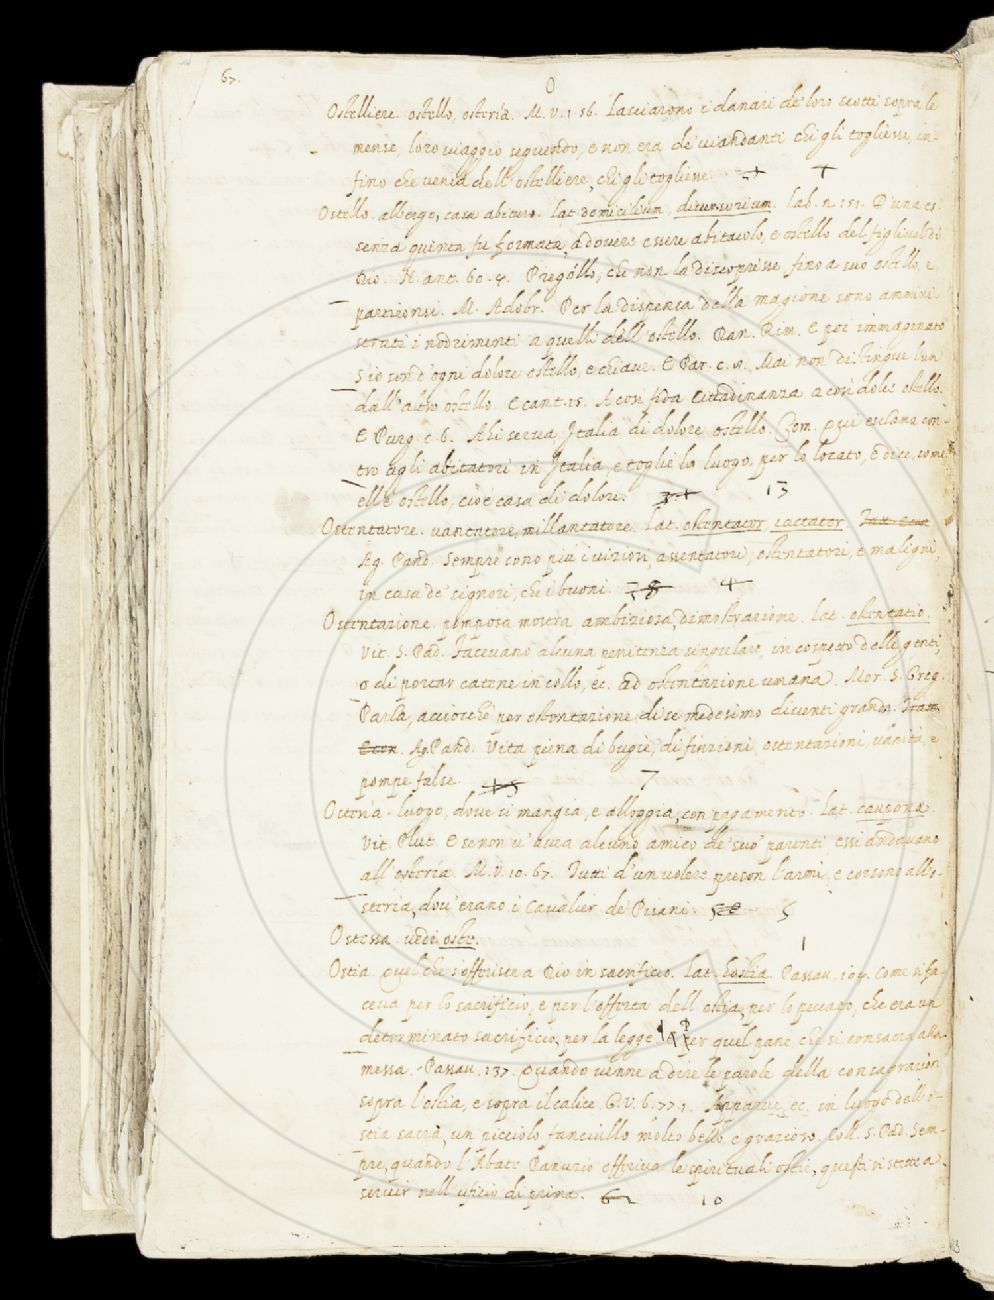 67.
O
Ostelliere. ostello, osteria. M. V. 1. 56. Lasciarono i danari de' loro scotti sopra le
mense, loro viaggio seguendo, e non era de' viandanti chi gli togliesse, in-
fino che venia dell' ostelliere, chi gli togliesse. +
Ostello. albergo, casa abituro. lat. domicilium, diversorium. lab. n. 151. D'una es-
senza quinta fu formata, a dovere essere abitacolo, e ostello del figliuol di
Dio. N. ant. 60. 4. Pregollo, che non la discoprisse fino a suo ostello, e
partironsi. M. Aldobr. Per la dispensa della magione sono ammini-
strati i nodrimenti a quelli dell' ostello. Dan. Rim. E poi immaginato
S'io son d'ogni dolore ostello, e chiave. E Par. c. Mai non distingue l'un
dall' altro ostello. E cant. 15. A così fida cittadinanza a così dolce ostello.
E Purg. c. 6. Ahi serva Italia di dolore ostello. Com. qui esclama con-
tro agli abitatori in Italia, e toglie lo luogo, per lo locato, E dice, come
ell' è ostello, cioè casa di dolore. 13
Ostentatore. vantatore, millantatore. lat. ostentator, iactator.
Ag. Pand. Sempre sono più i viziosi, assentatori, ostentatori, e maligni,
in casa de' signori, che i buoni. 4
Ostentazione. pomposa mostra, ambiziosa, dimostrazione. lat. ostentatio.
Vit. S. Pad. Facevano alcuna penitenza singulare, in cospetto delle genti,
o di portar catene in collo, ec. ad ostentazione umana. Mor. S. Greg.
Parla, acciocchè per ostentazione di se medesimo diventi grande. Tratt.
Econ. Ag. Pand. Vita piena di bugie, di finzioni, ostentazioni, vanità, e
pompe false. 7
Osteria. luogo, dove si mangia, e alloggia, con pagamento. lat. caupona.
Vit. Plut. E se non v' avea alcuno amico de' suoi parenti, essi andavano
all' osteria. M. V. 10. 67. Tutti d'un volere preson l'armi, e corsono all' o-
steria, dov' erano i Cavalier de' Pisani. 5
Ostessa. vedi oste. 1
Ostia. quel che s'offerisce a Dio in sacrificio. Lat. hostia. Passav. 109. Come si fa-
ceva per lo sacrificio, e per l'offerta dell' ostia, per lo peccato, che era un
determinato sacrificio, per la legge per quel pane, che si consacra alla
messa. Passav. 137. Quando venne a dire le parole della consagrazion
sopra l'ostia, e sopra il calice. G. V. 6. 77. 1. Apparve, ec. in luogo dell' o-
stia sacra, un picciolo fanciullo molto bello, e grazioso. Coll. S. Pad. Sem-
pre, quando l'Abate Panuzio offeriva le spirituali ostie, questi si stette a
servir nell' uficio di prima. 10